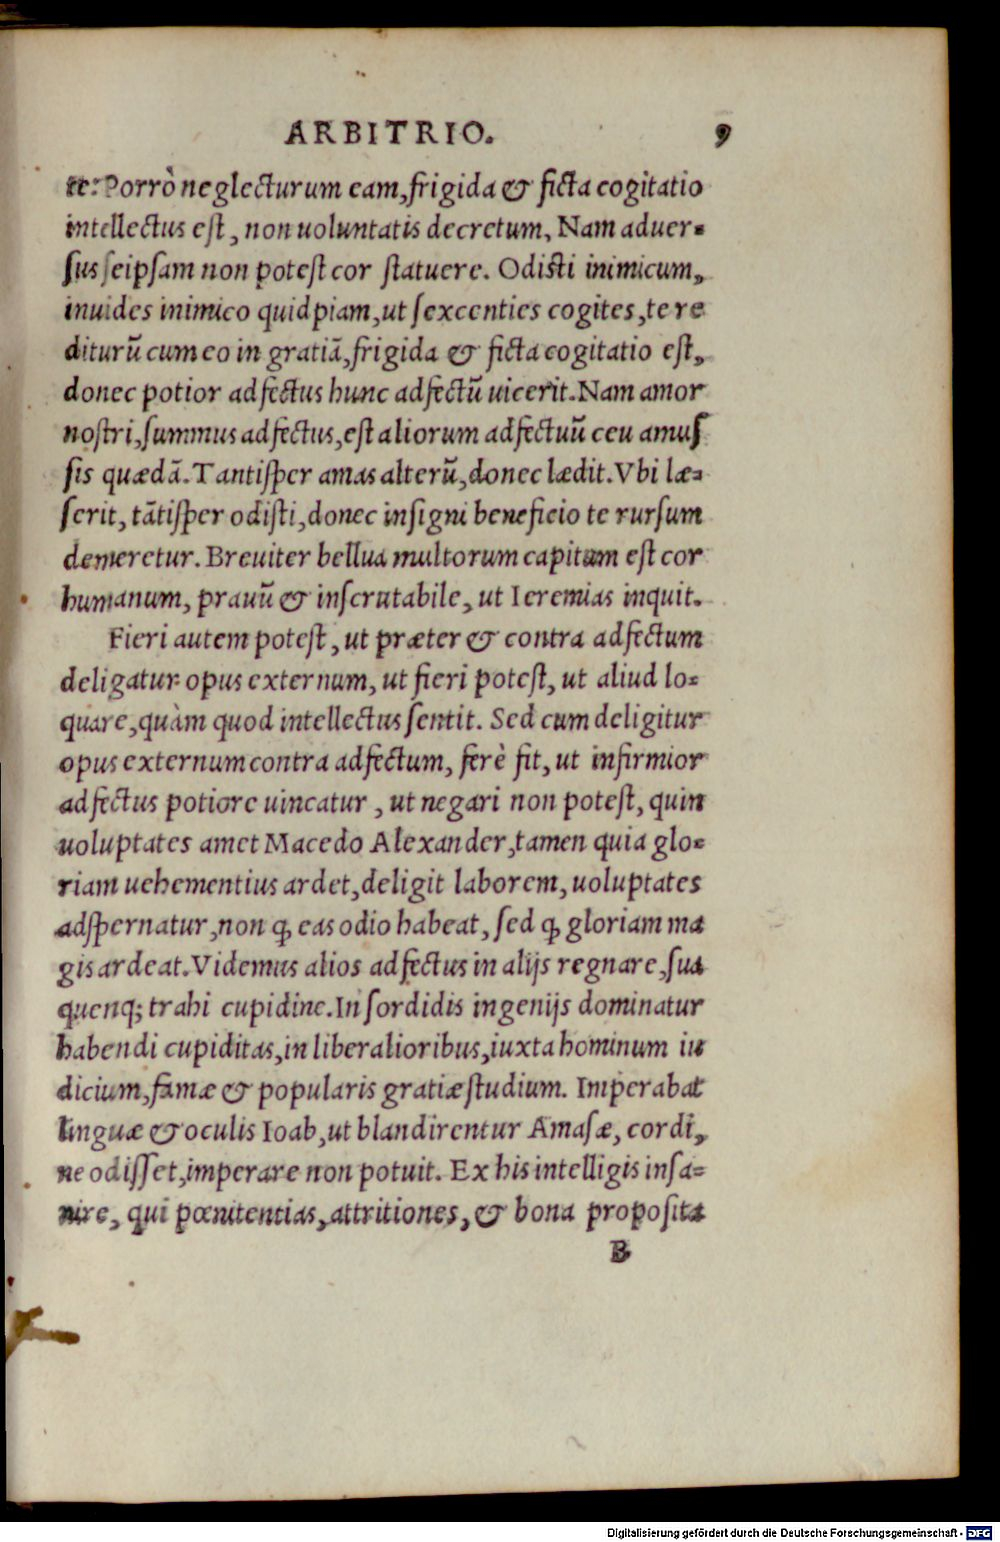 ARBITRIO. 9
te. Porrò neglecturum eam, frigida & ficta cogitatio
intellectus est, non uoluntatis decretum, Nam aduer-
sus seipsam non potest cor statuere. Odisti inimicum,
inuides inimico quidpiam, ut sexcenties cogites, te re
diturū cum eo in gratiā, frigida & ficta cogitatio est,
donec potior adfectus hunc adfectū uicerit. Nam amor
nostri, summus adfectus, est aliorum adfectuū ceu amus
sis quædā. Tantisper amas alterū, donec lædit. Vbi læ-
serit, tātisper odisti, donec insigni beneficio te rursum
demeretur. Breuiter bellua multorum capitum est cor
humanum, prauū & inscrutabile, ut Ieremias inquit.
Fieri autem potest, ut præter & contra adfectum
deligatur opus externum, ut fieri potest, ut aliud lo-
quare, quàm quod intellectus sentit. Sed cum deligitur
opus externum contra adfectum, ferè fit, ut infirmior
adfectus potiore uincatur, ut negari non potest, quin
uoluptates amet Macedo Alexander, tamen quia glo-
riam uehementius ardet, deligit laborem, uoluptates
adspernatur, non ꝙ eas odio habeat, sed ꝙ gloriam ma
gis ardeat. Videmus alios adfectus in alijs regnare, sua
quenq; trahi cupidine. In sordidis ingenijs dominatur
habendi cupiditas, in liberalioribus, iuxta hominum iu
dicium, famæ & popularis gratiæ studium. Imperabat
linguæ & oculis Ioab, ut blandirentur Amasæ, cordi,
ne odisset, imperare non potuit. Ex his intelligis insa-
nire, qui pœnitentias, attritiones, & bona proposita
B
Digitalisierung gefördert durch die Deutsche Forschungsgemeinschaft - DFG